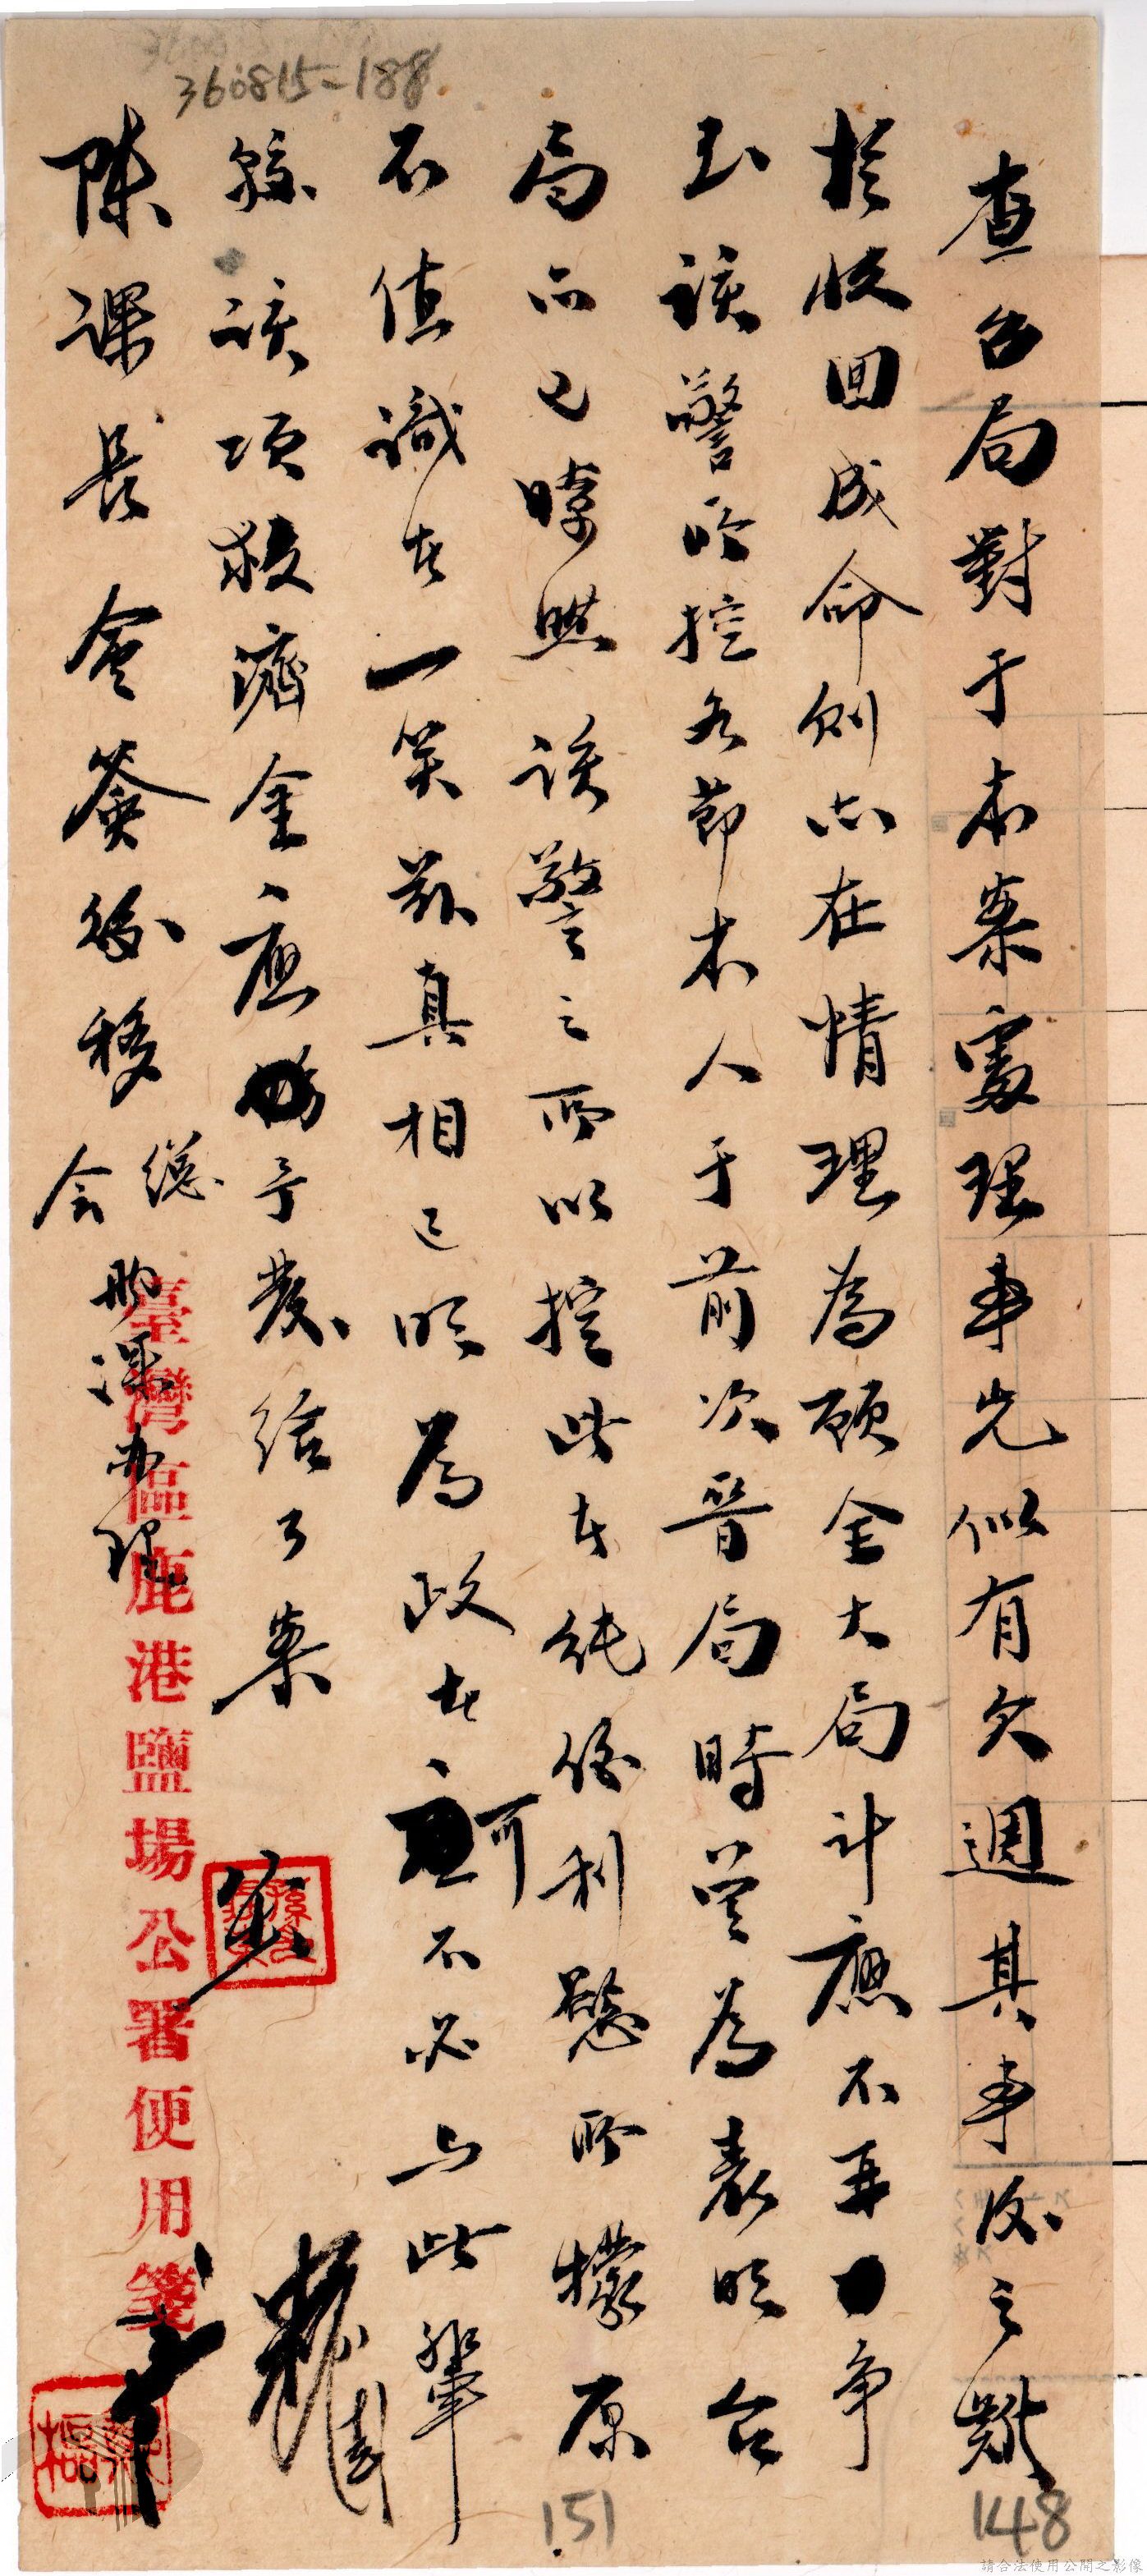 360815-188
查台局對于本案處理事先似有欠週其事後之難
於收回成命則亦在情理為顧全大局計應不再爭
至該警所控各節本人于前次晉局時曾為表明台
局亦已瞭然該警之所以控此者純係利慾所懷原
不值識者一笑茲真相已明為政者可不必與此輩
該項救濟金應予發給了案
陳課長會簽後移
總
会
課办理
臺灣區鹿港鹽場公署便用箋
151
148
請合法使用公開之影像